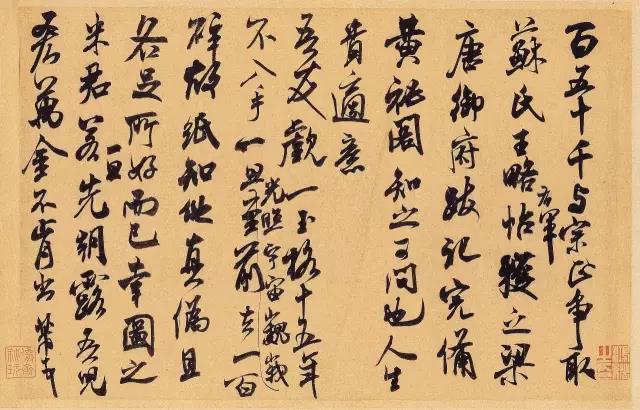 百五十千与宗正争取
蘇氏王略帖右軍獲之梁
唐御府跋記完備
黄祕閣知之可问也人生
貴適意
吾友覷一玉格十五年
不入手一旦光照宇宙巍峩至前去一百
碎故紙知他真偽且
各足所好而已幸圖之
米君若一旦先朝露吾兒
吝萬金不肯出芾